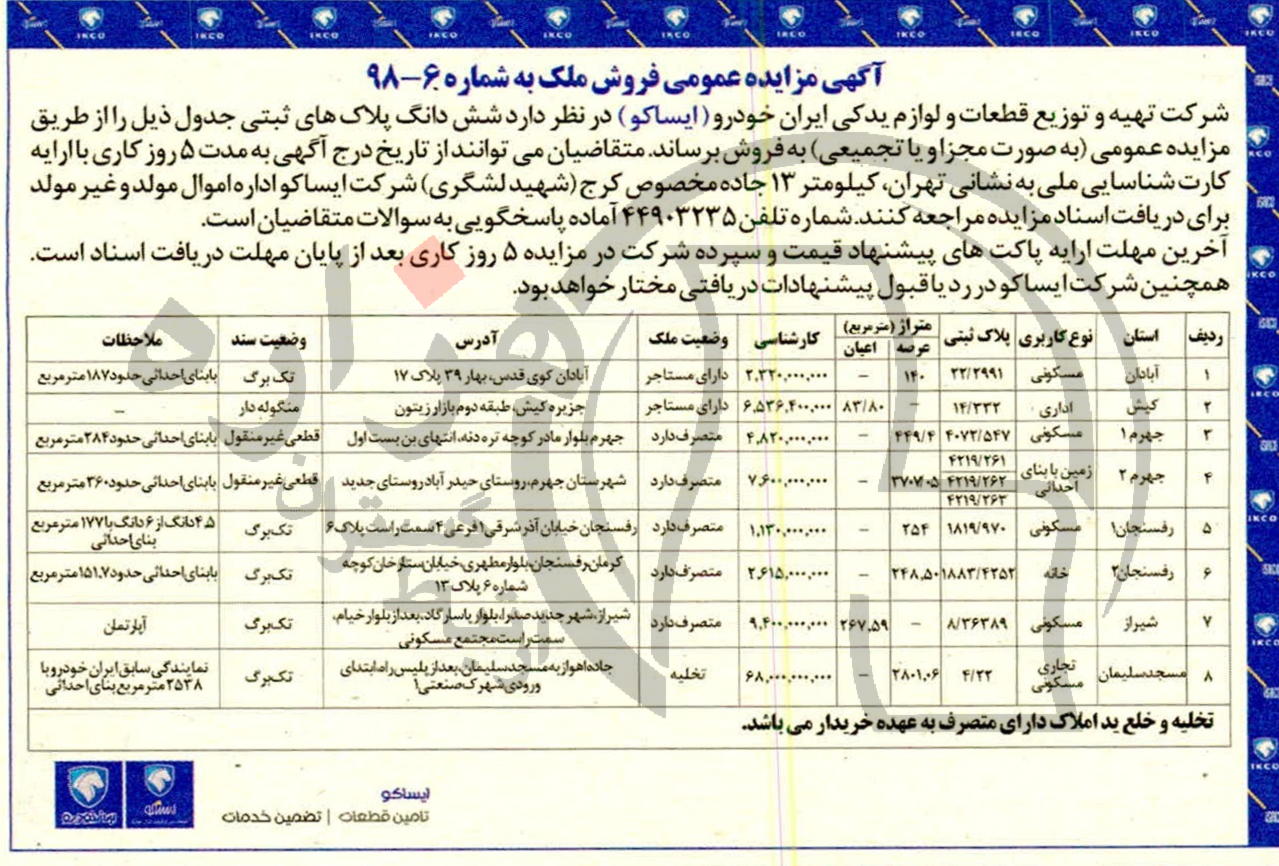 آگهی مزایده عمومی فروش ملک به شماره ۶-۹۸
شرکت تهیه و توزیع قطعات و لوازم یدکی ایران خودرو (ایساکو) در نظر دارد شش دانگ پلاک های ثبتی جدول ذیل را از طریق
مزایده عمومی (به صورت مجزا و یا تجمیعی) به فروش برساند. متقاضیان می توانند از تاریخ درج آگهی به مدت ۵ روز کاری با ارایه
کارت شناسایی ملی به نشانی تهران، کیلومتر ۱۳ جاده مخصوص کرج (شهید لشگری) شرکت ایساکو اداره اموال مولد و غیر مولد
برای دریافت اسناد مزایده مراجعه کنند. شماره تلفن ۴۴۹۰۳۲۳۵ آماده پاسخگویی به سوالات متقاضیان است.
آخرین مهلت ارایه پاکت های پیشنهاد قیمت و سپرده شرکت در مزایده ۵ روز کاری بعد از پایان مهلت دریافت اسناد است.
همچنین شرکت ایساکو در رد یا قبول پیشنهادات دریافتی مختار خواهد بود.
ردیف استان نوع کاربری پلاک ثبتی متراژ (مترمربع) عرصه اعیان کارشناسی وضعیت ملک آدرس وضعیت سند ملاحظات
۱ آبادان مسکونی ۲۲/۲۹۹۱ ۱۴۰ – ۲,۲۲۰,۰۰۰,۰۰۰ دارای مستاجر آبادان کوی قدس، بهار ۳۹ پلاک ۱۷ تک برگ با بنای احداثی حدود ۱۸۷ مترمربع
۲ کیش اداری ۱۴/۳۳۲ – ۸۳/۸۰ ۶,۵۳۶,۴۰۰,۰۰۰ دارای مستاجر جزیره کیش، طبقه دوم بازار زیتون منگوله دار –
۳ جهرم ۱ مسکونی ۴۰۷۲/۵۴۷ ۴۴۹/۴ – ۴,۸۲۰,۰۰۰,۰۰۰ متصرف دارد جهرم بلوار مادر کوچه تره دنه، انتهای بن بست اول قطعی غیر منقول با بنای احداثی حدود ۲۸۴ مترمربع
۴ جهرم ۲ زمین با بنای احداثی ۴۲۱۹/۲۶۱ ۴۲۱۹/۲۶۲ ۴۲۱۹/۲۶۳ ۳۷۰۷.۰۵ – ۷,۶۰۰,۰۰۰,۰۰۰ متصرف دارد شهرستان جهرم، روستای حیدر آباد روستای جدید قطعی غیر منقول با بنای احداثی حدود ۳۶۰ مترمربع
۵ رفسنجان ۱ مسکونی ۱۸۱۹/۹۷۰ ۲۵۴ – ۱,۱۳۰,۰۰۰,۰۰۰ متصرف دارد رفسنجان خیابان آذر شرقی ۱ فرعی ۴ سمت راست پلاک ۶ تک برگ ۴.۵ دانگ از ۶ دانگ با ۱۷۷ مترمربع بنای احداثی
۶ رفسنجان ۲ خانه ۱۸۸۳/۴۲۵۲ ۲۴۸.۵۰ – ۲,۶۱۵,۰۰۰,۰۰۰ متصرف دارد کرمان، رفسنجان، بلوار مطهری، خیابان ستارخان کوچه شماره ۶ پلاک ۱۳ تک برگ با بنای احداثی حدود ۱۵۱.۷ مترمربع
۷ شیراز مسکونی ۸/۳۶۳۸۹ – ۲۶۷.۵۹ ۹,۴۰۰,۰۰۰,۰۰۰ متصرف دارد شیراز، شهر جدید صدرا، بلوار پاسارگاد، بعد از بلوار خیام، سمت راست مجتمع مسکونی تک برگ آپارتمان
۸ مسجدسلیمان تجاری مسکونی ۴/۲۲ ۲۸۰۱.۰۶ – ۶۸,۰۰۰,۰۰۰,۰۰۰ تخلیه جاده اهواز به مسجد سلیمان، بعد از پلیس راه، ابتدای ورودی شهرک صنعتی ۱ تک برگ نمایندگی سابق ایران خودرو با ۲۵۳۸ متر مربع بنای احداثی
تخلیه و خلع ید املاک دارای متصرف به عهده خریدار می باشد.
ایساکو
تامین قطعات | تضمین خدمات